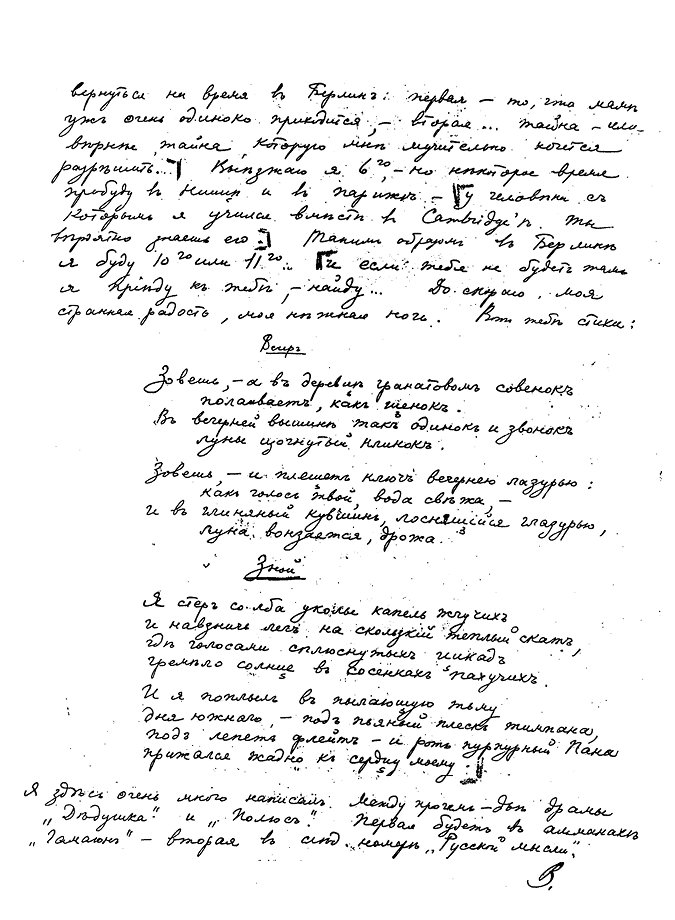 вернуться на время въ Берлинъ: первая — то, что мамѣ
ужъ очень одиноко приходится, — вторая... тайна — или
вѣрнѣе тайна, которую мнѣ мучительно хочется
разрѣшить... Выѣзжаю я 6го, — но нѣкоторое время
пробуду въ Ниццѣ и въ Парижѣ — [у человѣка съ
которымъ я учился вмѣстѣ въ Cambridge'ѣ. Ты
вѣроятно знаешь его]. Такимъ образомъ въ Берлинѣ
я буду 10го или 11го.. [И если тебя не будетъ тамъ
я пріѣду къ тебѣ, — найду... До скораго, моя
странная радость, моя нѣжная ночь. Вотъ тебѣ стихи:
Вечеръ
Зовешь, — а въ деревцѣ гранатовомъ совенокъ
полаиваетъ, какъ щенокъ.
Въ вечерней вышинѣ такъ одинокъ и звонокъ
луны изогнутый клинокъ.
Зовешь, — и плещетъ ключъ вечернею лазурью:
какъ голосъ твой, вода свѣжа, —
и въ глиняный кувшинъ, лоснящійся глазурью,
луна вонзается, дрожа.
Зной
Я стеръ со лба укольы капель жгучихъ
и навзничь легъ на скользкій теплый скатъ,
гдѣ голосами сплюснутыхъ цикадъ
гремѣло солнце въ сосенкахъ пахучихъ.
И я поплылъ въ пылающую тьму
дня южнаго, — подъ пьяный плескъ тимпана,
подъ лепетъ флейтъ — и ротъ пурпурный Пана
прижался жадно къ сердцу моему.]
Я здѣсь очень много написалъ. Между прочимъ — двѣ драмы
„Дѣдушка" и „Полюсъ". Первая будетъ въ альманахѣ
„Гамаюнъ" — вторая въ слѣд. номерѣ „Русской мысли".
В.